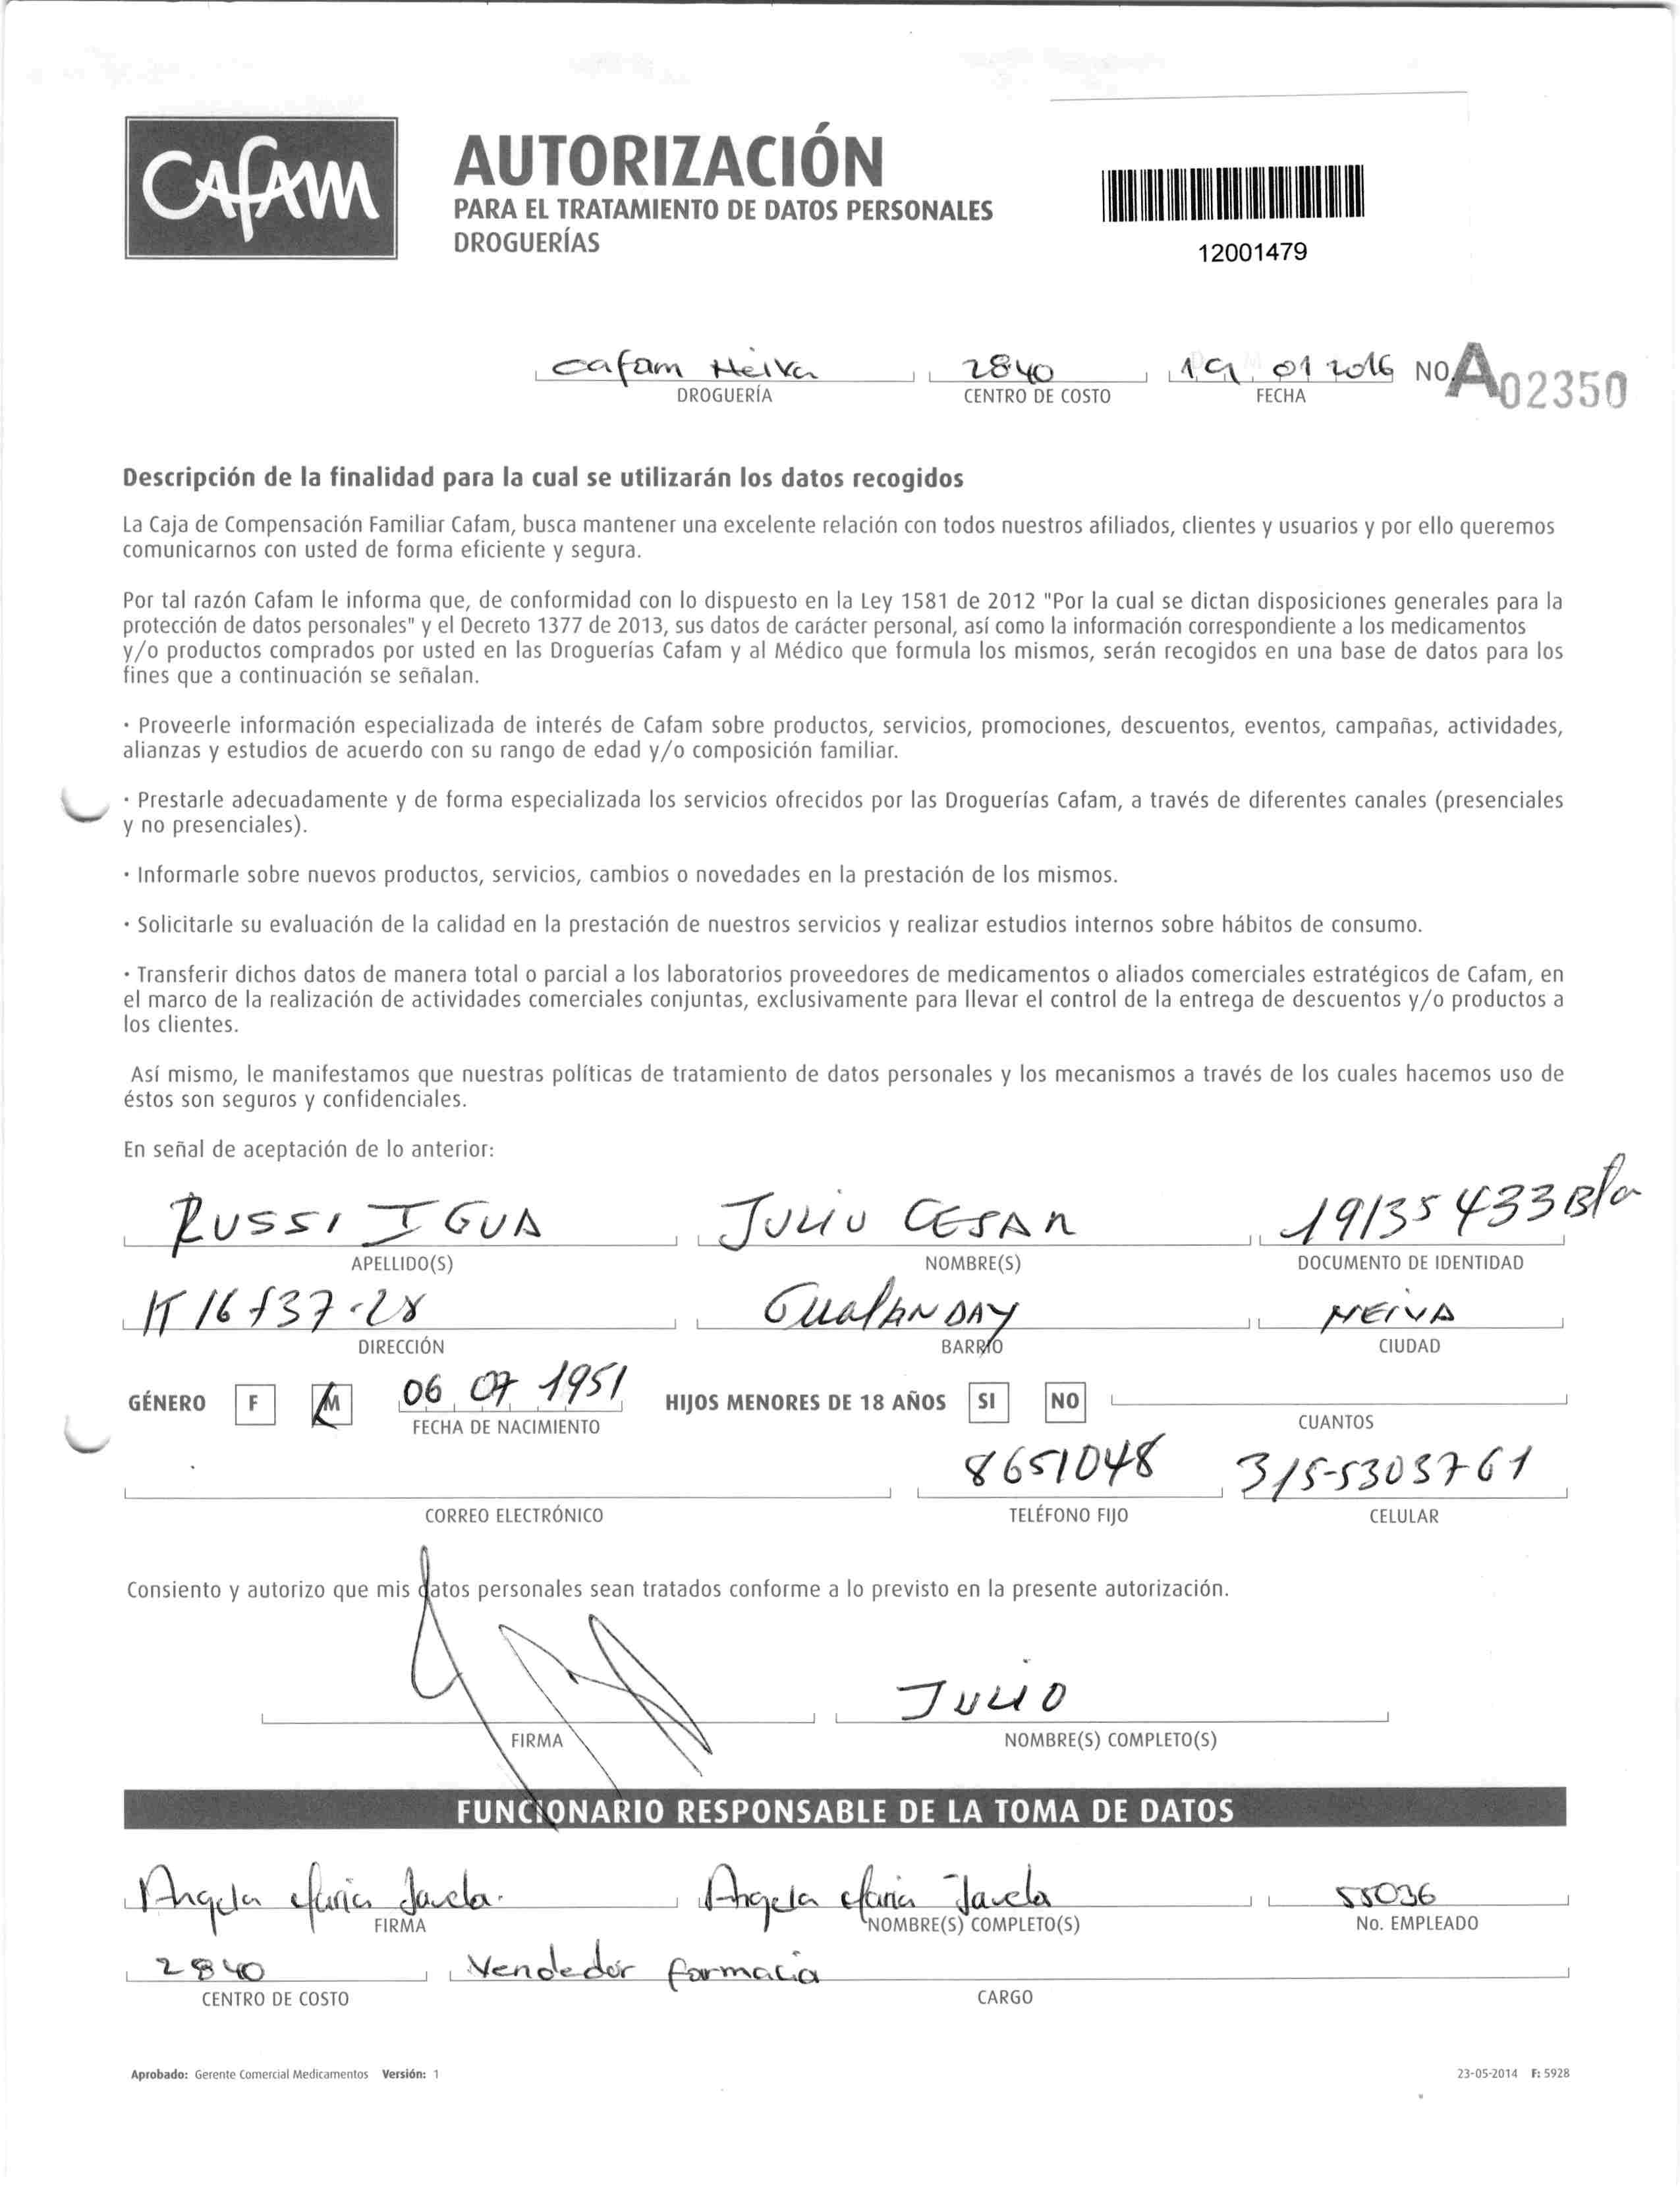 CAFAM
AUTORIZACIÓN
PARA EL TRATAMIENTO DE DATOS PERSONALES
DROGUERÍAS
12001479
cafam Neiva 2840 19 01 2016 NO. A02350
DROGUERÍA CENTRO DE COSTO FECHA
Descripción de la finalidad para la cual se utilizarán los datos recogidos
La Caja de Compensación Familiar Cafam, busca mantener una excelente relación con todos nuestros afiliados, clientes y usuarios y por ello queremos
comunicarnos con usted de forma eficiente y segura.
Por tal razón Cafam le informa que, de conformidad con lo dispuesto en la Ley 1581 de 2012 "Por la cual se dictan disposiciones generales para la
protección de datos personales" y el Decreto 1377 de 2013, sus datos de carácter personal, así como la información correspondiente a los medicamentos
y/o productos comprados por usted en las Droguerías Cafam y al Médico que formula los mismos, serán recogidos en una base de datos para los
fines que a continuación se señalan.
· Proveerle información especializada de interés de Cafam sobre productos, servicios, promociones, descuentos, eventos, campañas, actividades,
alianzas y estudios de acuerdo con su rango de edad y/o composición familiar.
· Prestarle adecuadamente y de forma especializada los servicios ofrecidos por las Droguerías Cafam, a través de diferentes canales (presenciales
y no presenciales).
· Informarle sobre nuevos productos, servicios, cambios o novedades en la prestación de los mismos.
· Solicitarle su evaluación de la calidad en la prestación de nuestros servicios y realizar estudios internos sobre hábitos de consumo.
· Transferir dichos datos de manera total o parcial a los laboratorios proveedores de medicamentos o aliados comerciales estratégicos de Cafam, en
el marco de la realización de actividades comerciales conjuntas, exclusivamente para llevar el control de la entrega de descuentos y/o productos a
los clientes.
Así mismo, le manifestamos que nuestras políticas de tratamiento de datos personales y los mecanismos a través de los cuales hacemos uso de
éstos son seguros y confidenciales.
En señal de aceptación de lo anterior:
RUSSI IGUA JULIO CESAR 19135433 B/a
APELLIDO(S) NOMBRE(S) DOCUMENTO DE IDENTIDAD
K 16 #37-28 GUALANDAY NEIVA
DIRECCIÓN BARRIO CIUDAD
GÉNERO F M 06 07 1951 HIJOS MENORES DE 18 AÑOS SI NO
FECHA DE NACIMIENTO CUANTOS
8651048 315-5303761
CORREO ELECTRÓNICO TELÉFONO FIJO CELULAR
Consiento y autorizo que mis datos personales sean tratados conforme a lo previsto en la presente autorización.
JULIO
FIRMA NOMBRE(S) COMPLETO(S)
FUNCIONARIO RESPONSABLE DE LA TOMA DE DATOS
Angela Maria Javela. Angela Maria Javela 55036
FIRMA NOMBRE(S) COMPLETO(S) No. EMPLEADO
2840 Vendedor farmacia
CENTRO DE COSTO CARGO
Aprobado: Gerente Comercial Medicamentos Versión: 1 23-05-2014 F: 5928